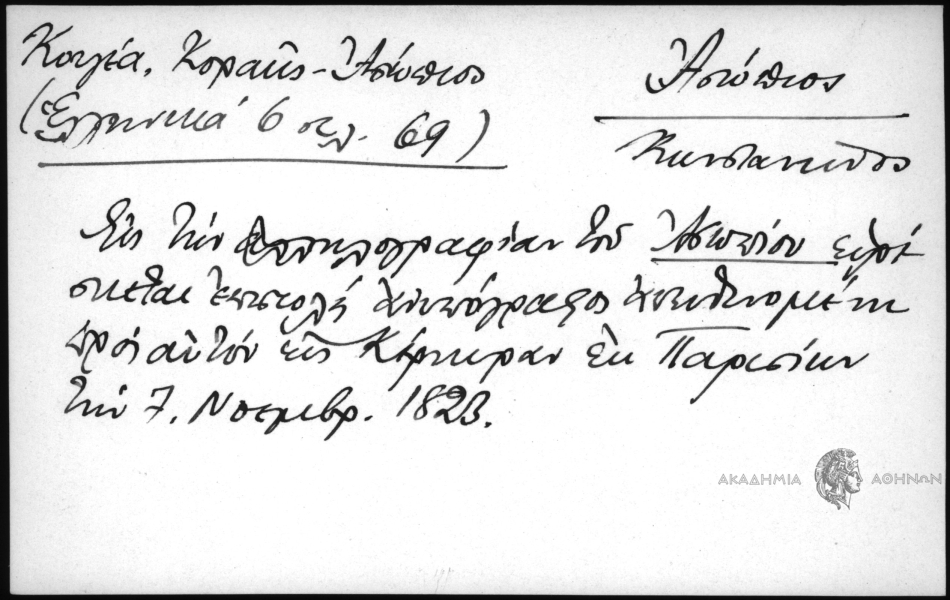 Κουγέα, Κοραῆς - Ἀσώπιος
(Ἑλληνικά 6 σελ. 69)
Ἀσώπιος
Κωνσταντῖνος
Εἰς τὴν ἀλληλογραφίαν τοῦ Ἀσωπίου εὑρί
σκεται ἐπιστολὴ ἀνυπόγραφος ἀπευθυνομένη
πρὸς αὐτὸν εἰς Κέρκυραν ἐκ Παρισίων
τὴν 7. Νοεμβρ. 1823.
ΑΚΑΔΗΜΙΑ ΑΘΗΝΩΝ